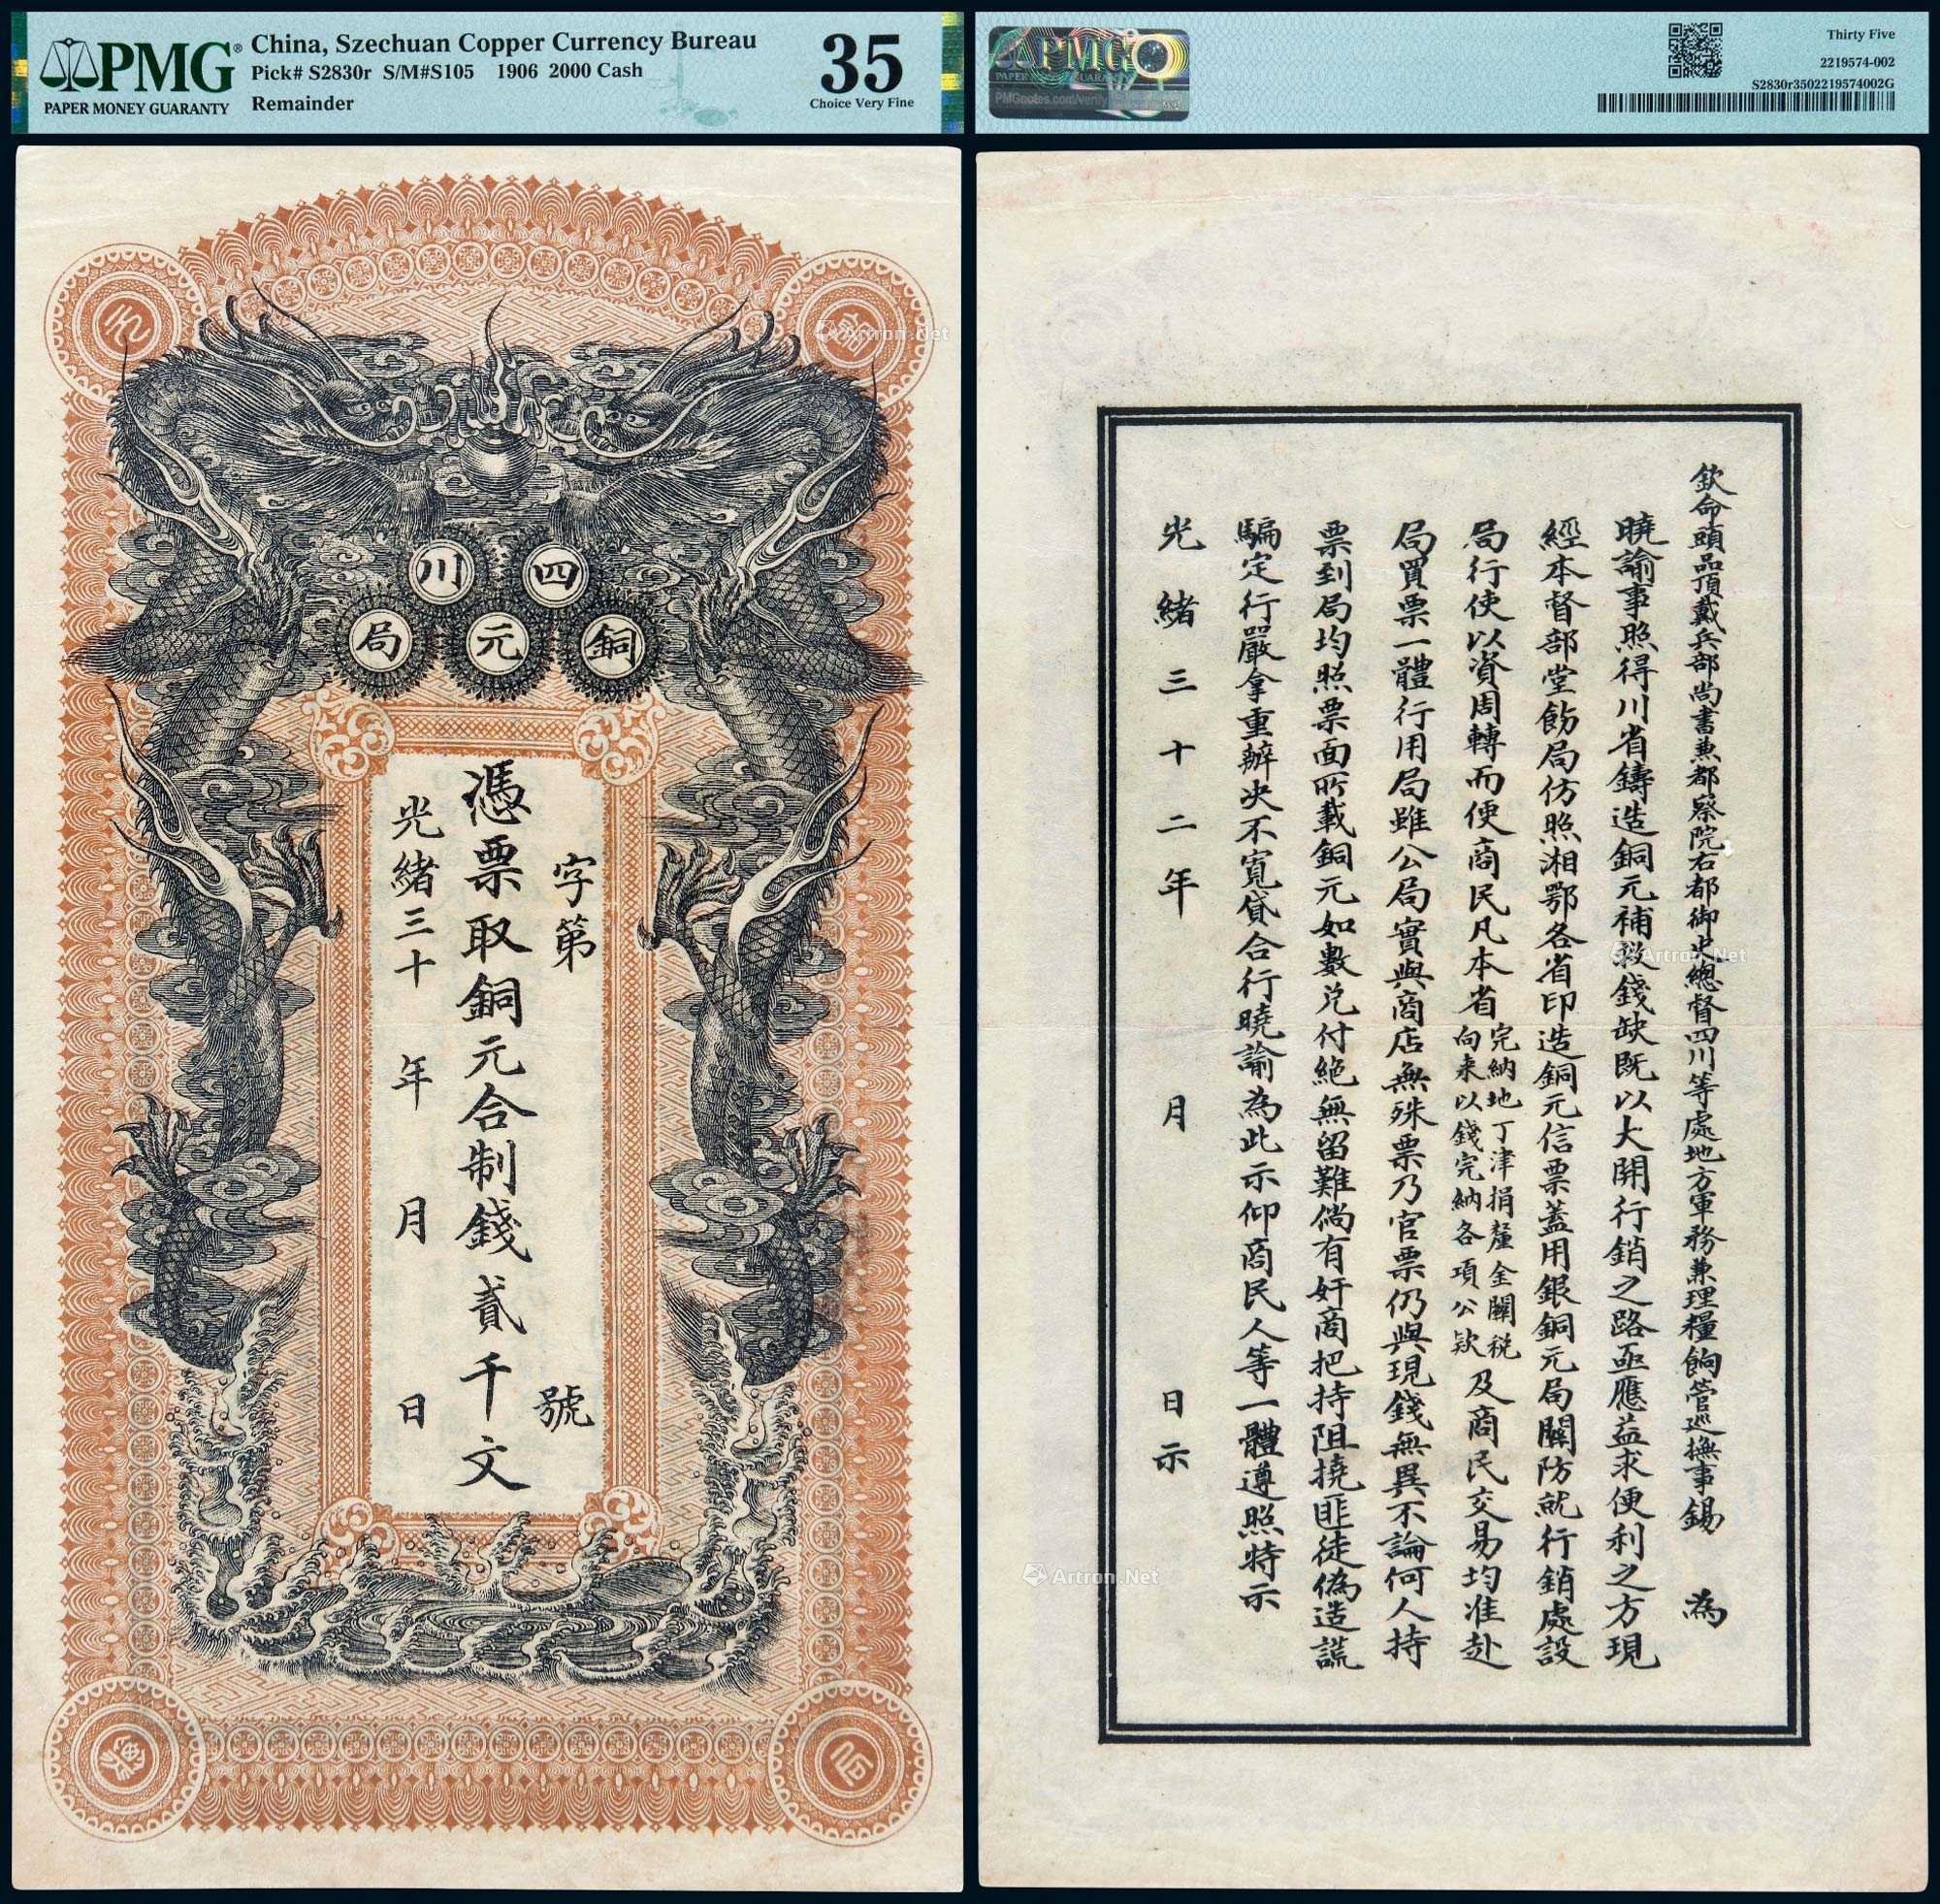 PMG®
PAPER MONEY GUARANTY
China, Szechuan Copper Currency Bureau
Pick# S2830r S/M#S105 1906 2000 Cash
Remainder
35
Choice Very Fine
PMG
PAPER MONEY GUARANTY
PMGnotes.com/verify
Thirty Five
2219574-002
S2830r3502219574002G
Artron.Net
四川
銅元局
字第 號
憑票取銅元合制錢貳千文
光緒三十 年 月 日
欽命頭品頂戴兵部尚書兼都察院右都御史總督四川等處地方軍務兼理糧餉管巡撫事錫 為
曉諭事照得川省鑄造銅元補救錢缺既以大開行銷之路亟應益求便利之方現
經本督部堂飭局仿照湘鄂各省印造銅元信票蓋用銀銅元局關防就行銷處設
局行使以資周轉而便商民凡本省完納地丁津捐釐金關稅向來以錢完納各項公款及商民交易均准赴
局買票一體行用局雖公局實與商店無殊票乃官票仍與現錢無異不論何人持
票到局均照票面所載銅元如數兌付絕無留難倘有奸商把持阻撓匪徒偽造謊
騙定行嚴拿重辦決不寬貸合行曉諭為此示仰商民人等一體遵照特示
光緒三十二年 月 日示
Artron.Net
Artron.Net